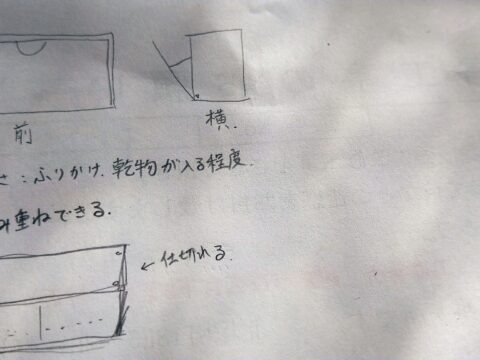 前
横.
さ:ふりかけ.乾物が入る程度.
み重ねできる.
←仕切れる.